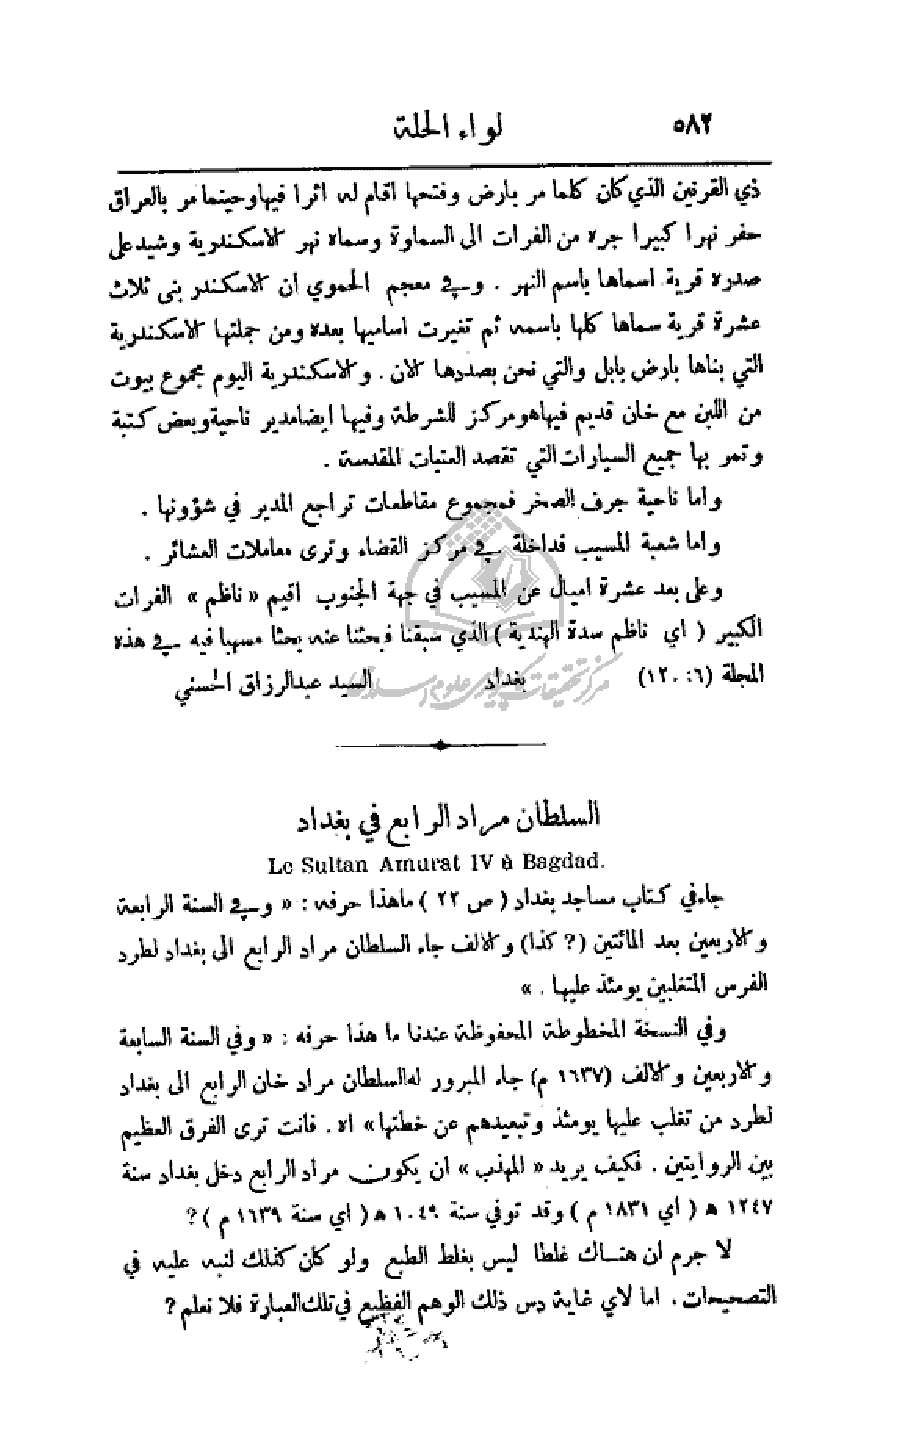 ٥٨٢ لواء الحلة
ذي القرنين الذي كان كلما مر بارض وفتحها اقام له اثرا فيها وحينما مر بالعراق
حفر نهرا كبيرا جره من الفرات الى السماوة وسماه نهر الاسكندرية وشيد على
صدره قرية اسماها باسم النهر . وفي معجم الحموي ان الاسكندر بنى ثلاث
عشرة قرية سماها كلها باسمه ثم تغيرت اساميها بعده ومن جملتها الاسكندرية
التي بناها بارض بابل والتي نحن بصددها الآن . والاسكندرية اليوم مجموع بيوت
من اللبن مع خان قديم فيها هو مركز للشرطة وفيها ايضا مدير ناحية وبعض كتبة
وتمر بها جميع السيارات التي تقصد العتبات المقدسة .
واما ناحية جرف الصخر فمجموع مقاطعات تراجع المدير في شؤونها .
واما شعبة المسيب فداخلة في مركز القضاء وترى معاملات العشائر .
وعلى بعد عشرة اميال عن المسيب في جهة الجنوب اقيم « ناظم » الفرات
الكبير ( اي ناظم سدة الهندية ) الذي سبقنا فبحثنا عنه بحثا مسهبا فيه في هذه
المجلة (٦ : ١٢٠) بغداد السيد عبدالرزاق الحسني
السلطان مراد الرابع في بغداد
Le Sultan Amurat IV à Bagdad.
جاء في كتاب مساجد بغداد ( ص ٢٣ ) ما هذا حرفه : « وفي السنة الرابعة
والاربعين بعد المائتين (؟ كذا) والالف جاء السلطان مراد الرابع الى بغداد لطرد
الفرس المتغلبين يومئذ عليها . »
وفي النسخة المخطوطة المحفوظة عندنا ما هذا حرفه : « وفي السنة السابعة
والاربعين والالف (١٦٣٧ م) جاء المبرور له السلطان مراد خان الرابع الى بغداد
لطرد من تغلب عليها يومئذ وتبعيدهم عن خطتها » اه . فانت ترى الفرق العظيم
بين الروايتين . فكيف يريد « المهذب » ان يكون مراد الرابع دخل بغداد سنة
١٢٤٧ ه ( اي ١٨٣١ م ) وقد توفي سنة ١٠٤٩ ه ( اي سنة ١٦٣٩ م ) ؟
لا جرم ان هناك غلطا ليس بغلط الطبع ولو كان كذلك لنبه عليه في
التصحيحات . اما لاي غاية دس ذلك الوهم الفظيع في تلك العبارة فلا نعلم ؟